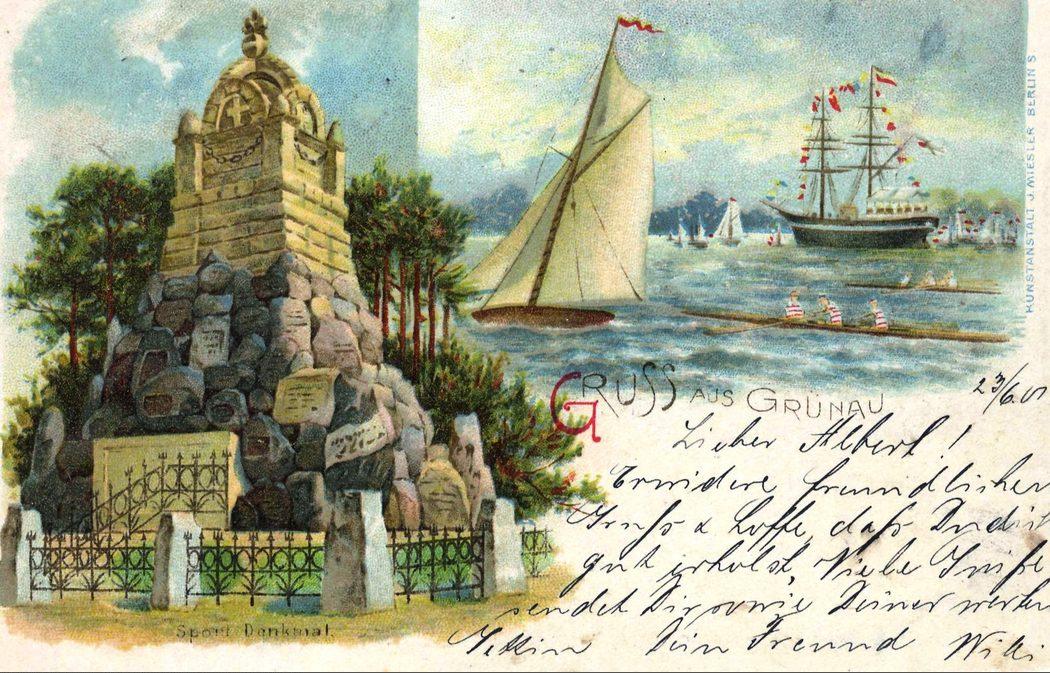 GRUSS AUS GRÜNAU
23/6.01
Lieber Albert!
Erwidere freundlichen
Gruß & hoffe, daß Du dich
gut erholst, Viele Grüße
sendet Dir sowie Deiner werten
Dein Freund Willi
Sport Denkmal.
KUNSTANSTALT J. MIESLER BERLIN S